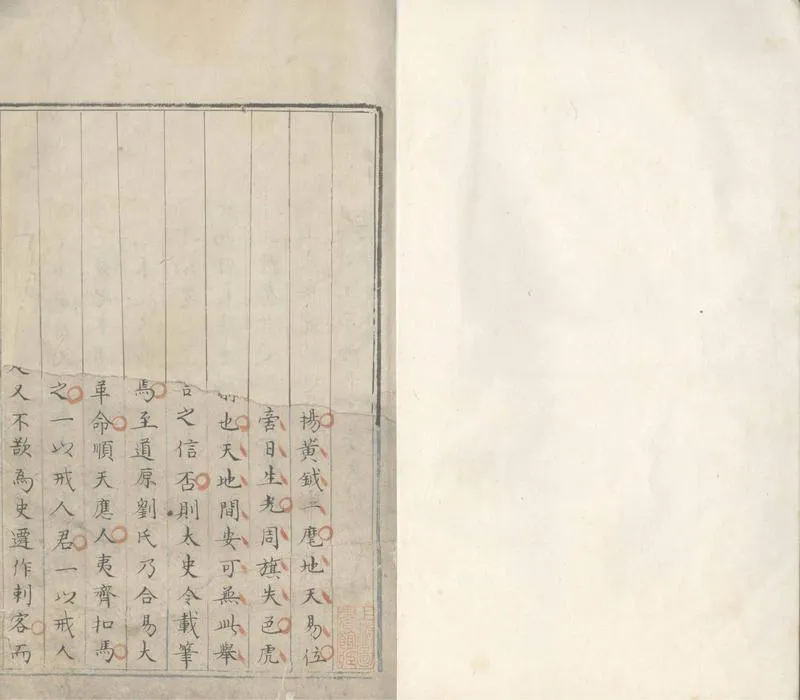 揚黃鉞一麾地天易位
旁日生光周旗失色虎
也天地間安可無此舉
之信否則太史令載筆
焉至道原劉氏乃合易大
革命順天應人夷齊扣馬
之一以戒人君一以戒人
又不欲為史遷作刺客而